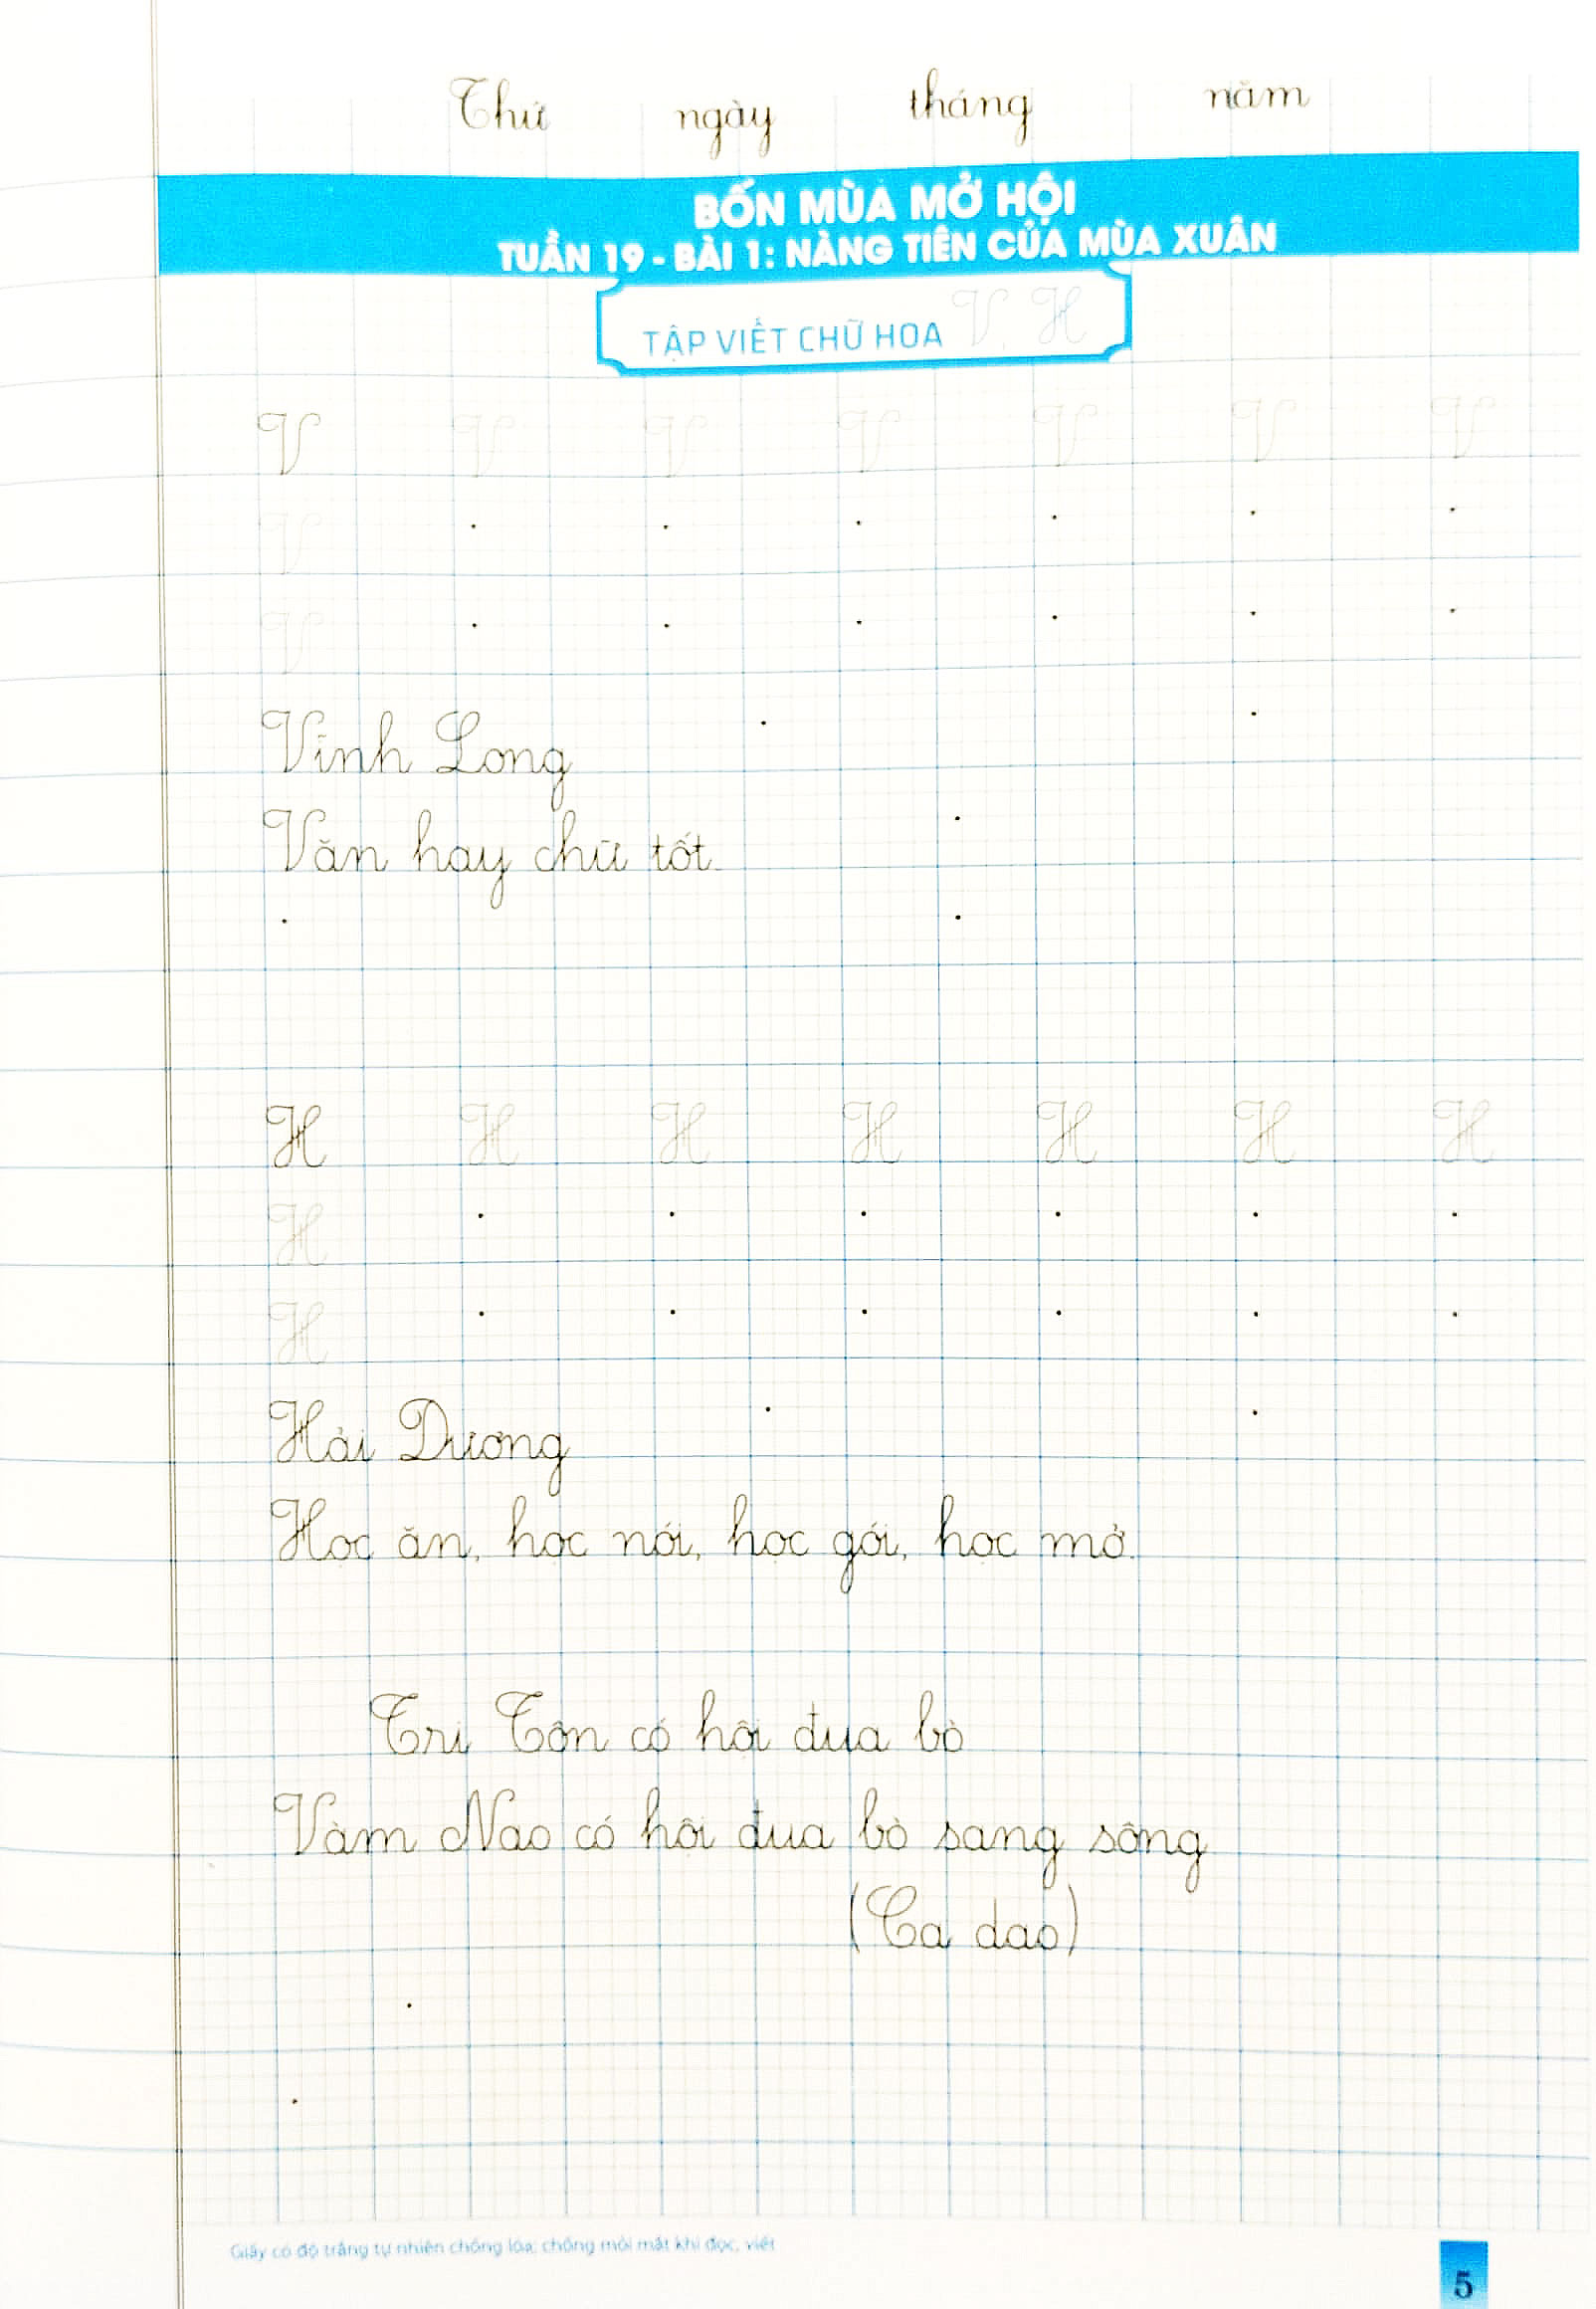 Thứ ngày tháng năm
BỐN MÙA MỞ HỘI
TUẦN 19 - BÀI 1: NÀNG TIÊN CỦA MÙA XUÂN
TẬP VIẾT CHỮ HOA V, H
V V V V V V V
V
V
Vĩnh Long
Văn hay chữ tốt.
H H H H H H H
H
H
Hải Dương
Học ăn, học nói, học gói, học mở.
Tri Tôn có hội đua bò
Vàm Nao có hội đua bò sang sông
(Ca dao)
Giấy có độ trắng tự nhiên chống lóa; chống mỏi mắt khi đọc, viết
5